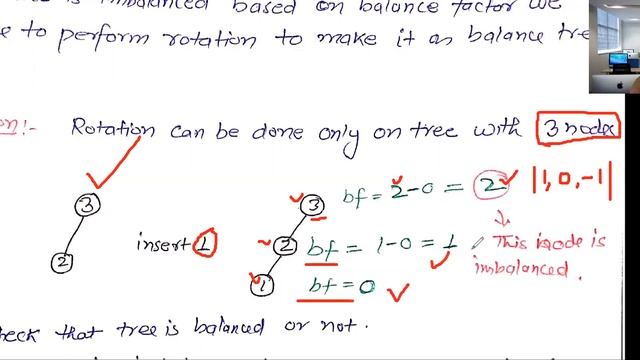 is imbalanced based on balance factor we
to perform rotation to make it as balance tre
on:- Rotation can be done only on tree with 3 nodes
3
2
insert 1
3 bf = 2-0 = 2 |1, 0, -1|
2 bf = 1-0 = 1 This node is
imbalanced.
1 bf = 0
check that tree is balanced or not.